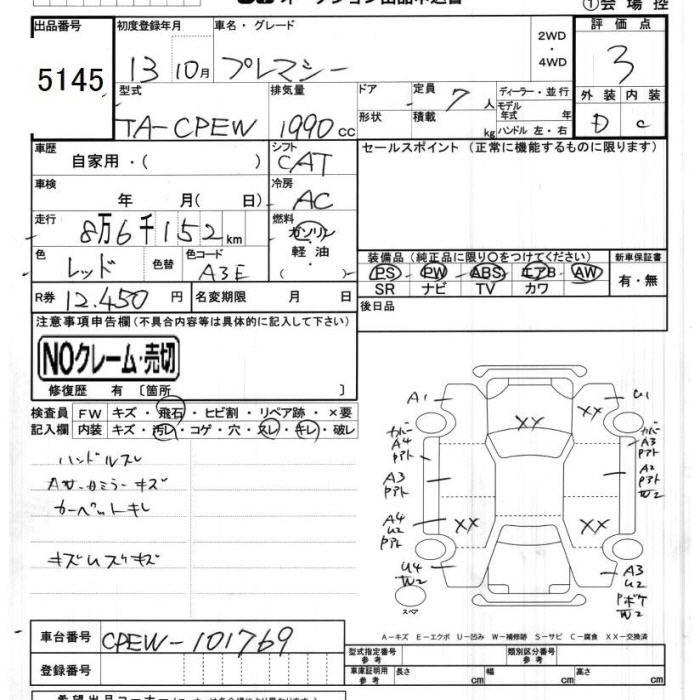 オークション出品申込書
①会場控
出品番号 初度登録年月 車名・グレード 2WD・4WD 評価点
5145 13 10月 プレマシー 3
型式 排気量 ドア 定員 7人 ディーラー・並行 外装 内装
TA-CPEW 1990cc 形状 積載 kg モデル年式 年 D c
ハンドル 左・右
車歴 自家用・( ) シフト CAT セールスポイント (正常に機能するものに限ります)
車検 年 月( 日) 冷房 AC
走行 8万6千152km 燃料 ガソリン・軽油・( )
色 レッド 色替 色コード A3E 装備品 (純正品に限り○をつけてください) 新車保証書
PS PW ABS エアB AW 有・無
SR ナビ TV カワ
R券 12.450円 名変期限 月 日 後日品
注意事項申告欄(不具合内容等は具体的に記入して下さい)
NOクレーム・売切
修復歴 有 〔箇所 〕
検査員 FW キズ・飛石・ヒビ割・リペア跡・×要
記入欄 内装 キズ・汚レ・コゲ・穴・スレ・キレ・破レ
ハンドルスレ
カーペットキレ
A1 U1
XX XX
カバー A4 Pアト カバー A3 Pアト
A3 Pアト A2 Pアト W2
A4 U2 Pアト XX XX
U4 W2 A3 U2 Pボケ W2
スペア
A-キズ E-エクボ U-凹み W-補修跡 S-サビ C-腐食 XX-交換済
車台番号 CPEW-101769
型式指定番号 参考 類別区分番号 参考
登録番号 車庫証明用 参考 長さ cm 幅 cm 高さ cm
希望出品コーナー